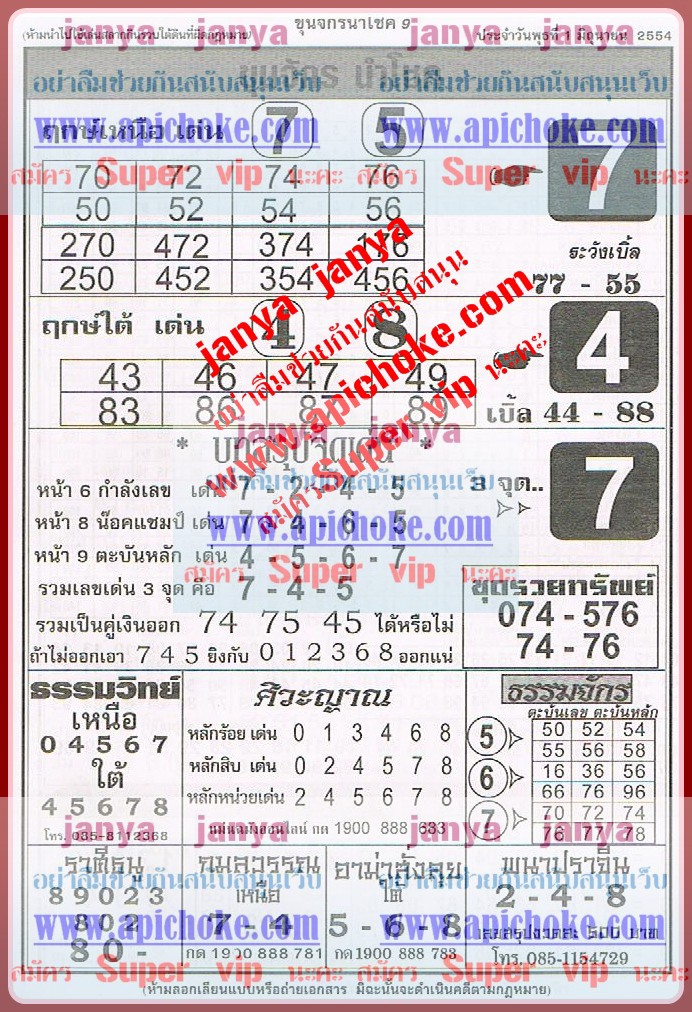 ขุนจักรนำโชค 9
(ห้ามนำไปใช้เล่นสลากกินรวบใต้ดินที่ผิดกฎหมาย)
ประจำวันพุธที่ 1 มิถุนายน 2554
janya janya janya janya
อย่าลืมช่วยกันสนับสนุนเว็บ อย่าลืมช่วยกันสนับสนุนเว็บ
www.apichoke.com www.apichoke.com
สมัคร Super vip นะคะ สมัคร Super vip นะคะ
ฤกษ์เหนือ เด่น 7 5
70 72 74 76
50 52 54 56
270 472 374 176
250 452 354 456
7
ระวังเบิ้ล
77 - 55
janya janya
อย่าลืมช่วยกันสนับสนุน
www.apichoke.com
สมัคร Super vip นะคะ
ฤกษ์ใต้ เด่น 4 8
43 46 47 49
83 86 87 89
4
เบิ้ล 44 - 88
janya janya
* บทสรุปจุดเด่น *
อย่าลืมช่วยกันสนับสนุนเว็บ
หน้า 6 กำลังเลข เด่น 7 - 2 - 4 - 5
หน้า 8 น๊อคแชมป์ เด่น 7 - 4 - 6 - 5
หน้า 9 ตะบันหลัก เด่น 4 - 5 - 6 - 7
3 จุด.. 7
www.apichoke.com
สมัคร Super vip นะคะ
รวมเลขเด่น 3 จุด คือ 7 - 4 - 5
รวมเป็นคู่เงินออก 74 75 45 ได้หรือไม่
ถ้าไม่ออกเอา 7 4 5 ยิงกับ 0 1 2 3 6 8 ออกแน่
ชุดรวยทรัพย์
074 - 576
74 - 76
ธรรมวิทย์
เหนือ
0 4 5 6 7
ใต้
4 5 6 7 8
โทร. 085-8112368
ศิวะญาณ
หลักร้อย เด่น 0 1 3 4 6 8
หลักสิบ เด่น 0 2 4 5 7 8
หลักหน่วยเด่น 2 4 5 6 7 8
แม่นแม่นออนไลน์ กด 1900 888 683
ธรรมจักร
ตะบันเลข ตะบันหลัก
5 50 52 54
55 56 58
6 16 36 56
66 76 96
7 70 72 74
76 77 78
janya janya janya janya
อย่าลืมช่วยกันสนับสนุนเว็บ อย่าลืมช่วยกันสนับสนุนเว็บ
www.apichoke.com www.apichoke.com
สมัคร Super vip นะคะ สมัคร Super vip นะคะ
ราศีธนู
8 9 0 2 3
8 0 2
8 0 -
กมลวรรณ
เหนือ
7 - 4
กด 1900 888 781
อาม่าฮั่งลุย
ใต้
5 - 6 - 8
กด1900 888 783
พนาปราจีน
2 - 4 - 8
เลขสรุปงวดละ 500 บาท
โทร. 085-1154729
(ห้ามลอกเลียนแบบหรือถ่ายเอกสาร มิฉะนั้นจะดำเนินคดีตามกฎหมาย)